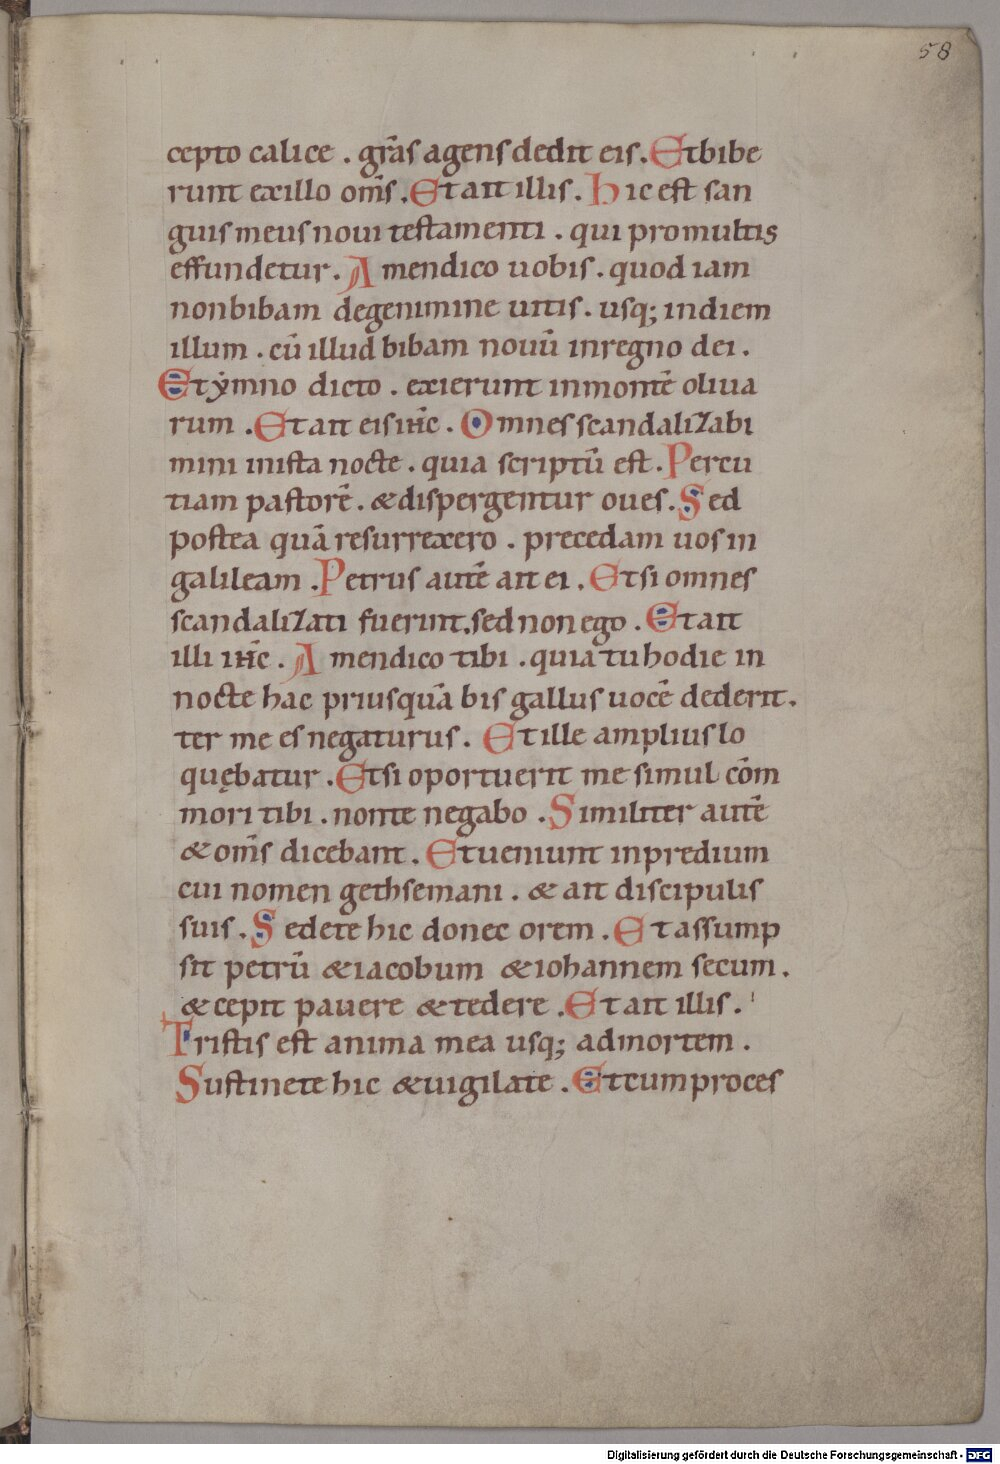 58
cepto calice . gr̄as agens dedit eis. Et bibe
runt ex illo om̄s. Et ait illis. Hic est san
guis meus noui testamenti . qui pro multis
effundetur. Amen dico uobis. quod iam
non bibam de genimine uitis. usq; in diem
illum . cū illud bibam nouū in regno dei .
Et ẏmno dicto . exierunt in montē oliua
rum . Et ait eis iħc . Omnes scandalizabi
mini in ista nocte . quia scriptū est. Percu
tiam pastorē . & dispergentur oues. Sed
postea quā resurrexero . precedam uos in
galileam . Petrus autē ait ei . Et si omnes
scandalizati fuerint. sed non ego . Et ait
illi iħc . Amen dico tibi . quia tu hodie in
nocte hac priusquā bis gallus uocē dederit.
ter me es negaturus. Et ille amplius lo
quębatur . Et si oportuerit me simul cōm
mori tibi . non te negabo . Similiter autē
& om̄s dicebant. Et ueniunt in predium
cui nomen gethsemani . & ait discipulis
suis. Sedete hic donec orem . Et assump
sit petrū & iacobum & iohannem secum .
& cepit pauere & tedere . Et ait illis .
Tristis est anima mea usq; ad mortem .
Sustinete hic & uigilate . Et cum proces
Digitalisierung gefördert durch die Deutsche Forschungsgemeinschaft - DFG